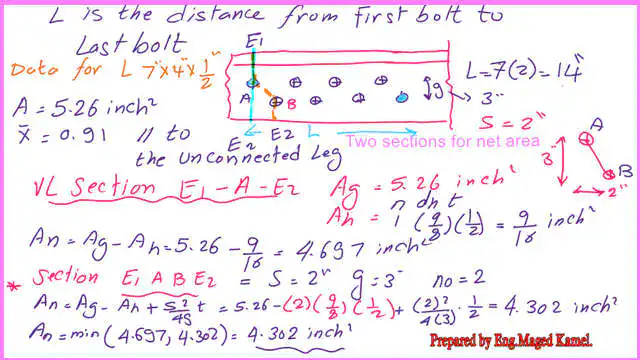 L is the distance from first bolt to
Last bolt
Data for L 7"x4"x1/2"
A = 5.26 inch²
x̄ = 0.91 // to
the unconnected Leg
E1
A
B
E2 E2 L
g
3"
Two sections for net area
L = 7(2) = 14"
S = 2"
A
3"
B
2"
VL Section E1-A-E2
Ag = 5.26 inch²
n dh t
Ah = 1 (9/8)(1/2) = 9/16 inch²
An = Ag - Ah = 5.26 - 9/16 = 4.697 inch²
* Section E1 A B E2 = S = 2" g = 3" no = 2
An = Ag - Ah + S²/4g t = 5.26 - (2)(9/8)(1/2) + (2)²/4(3) · 1/2 = 4.302 inch²
An = min(4.697, 4.302) = 4.302 inch²
Prepared by Eng.Maged Kamel.